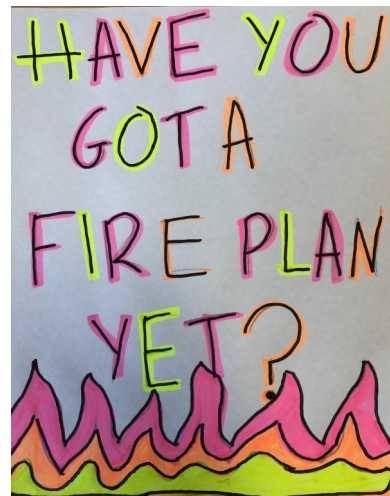 HAVE YOU
GOT A
FIRE PLAN
YET?